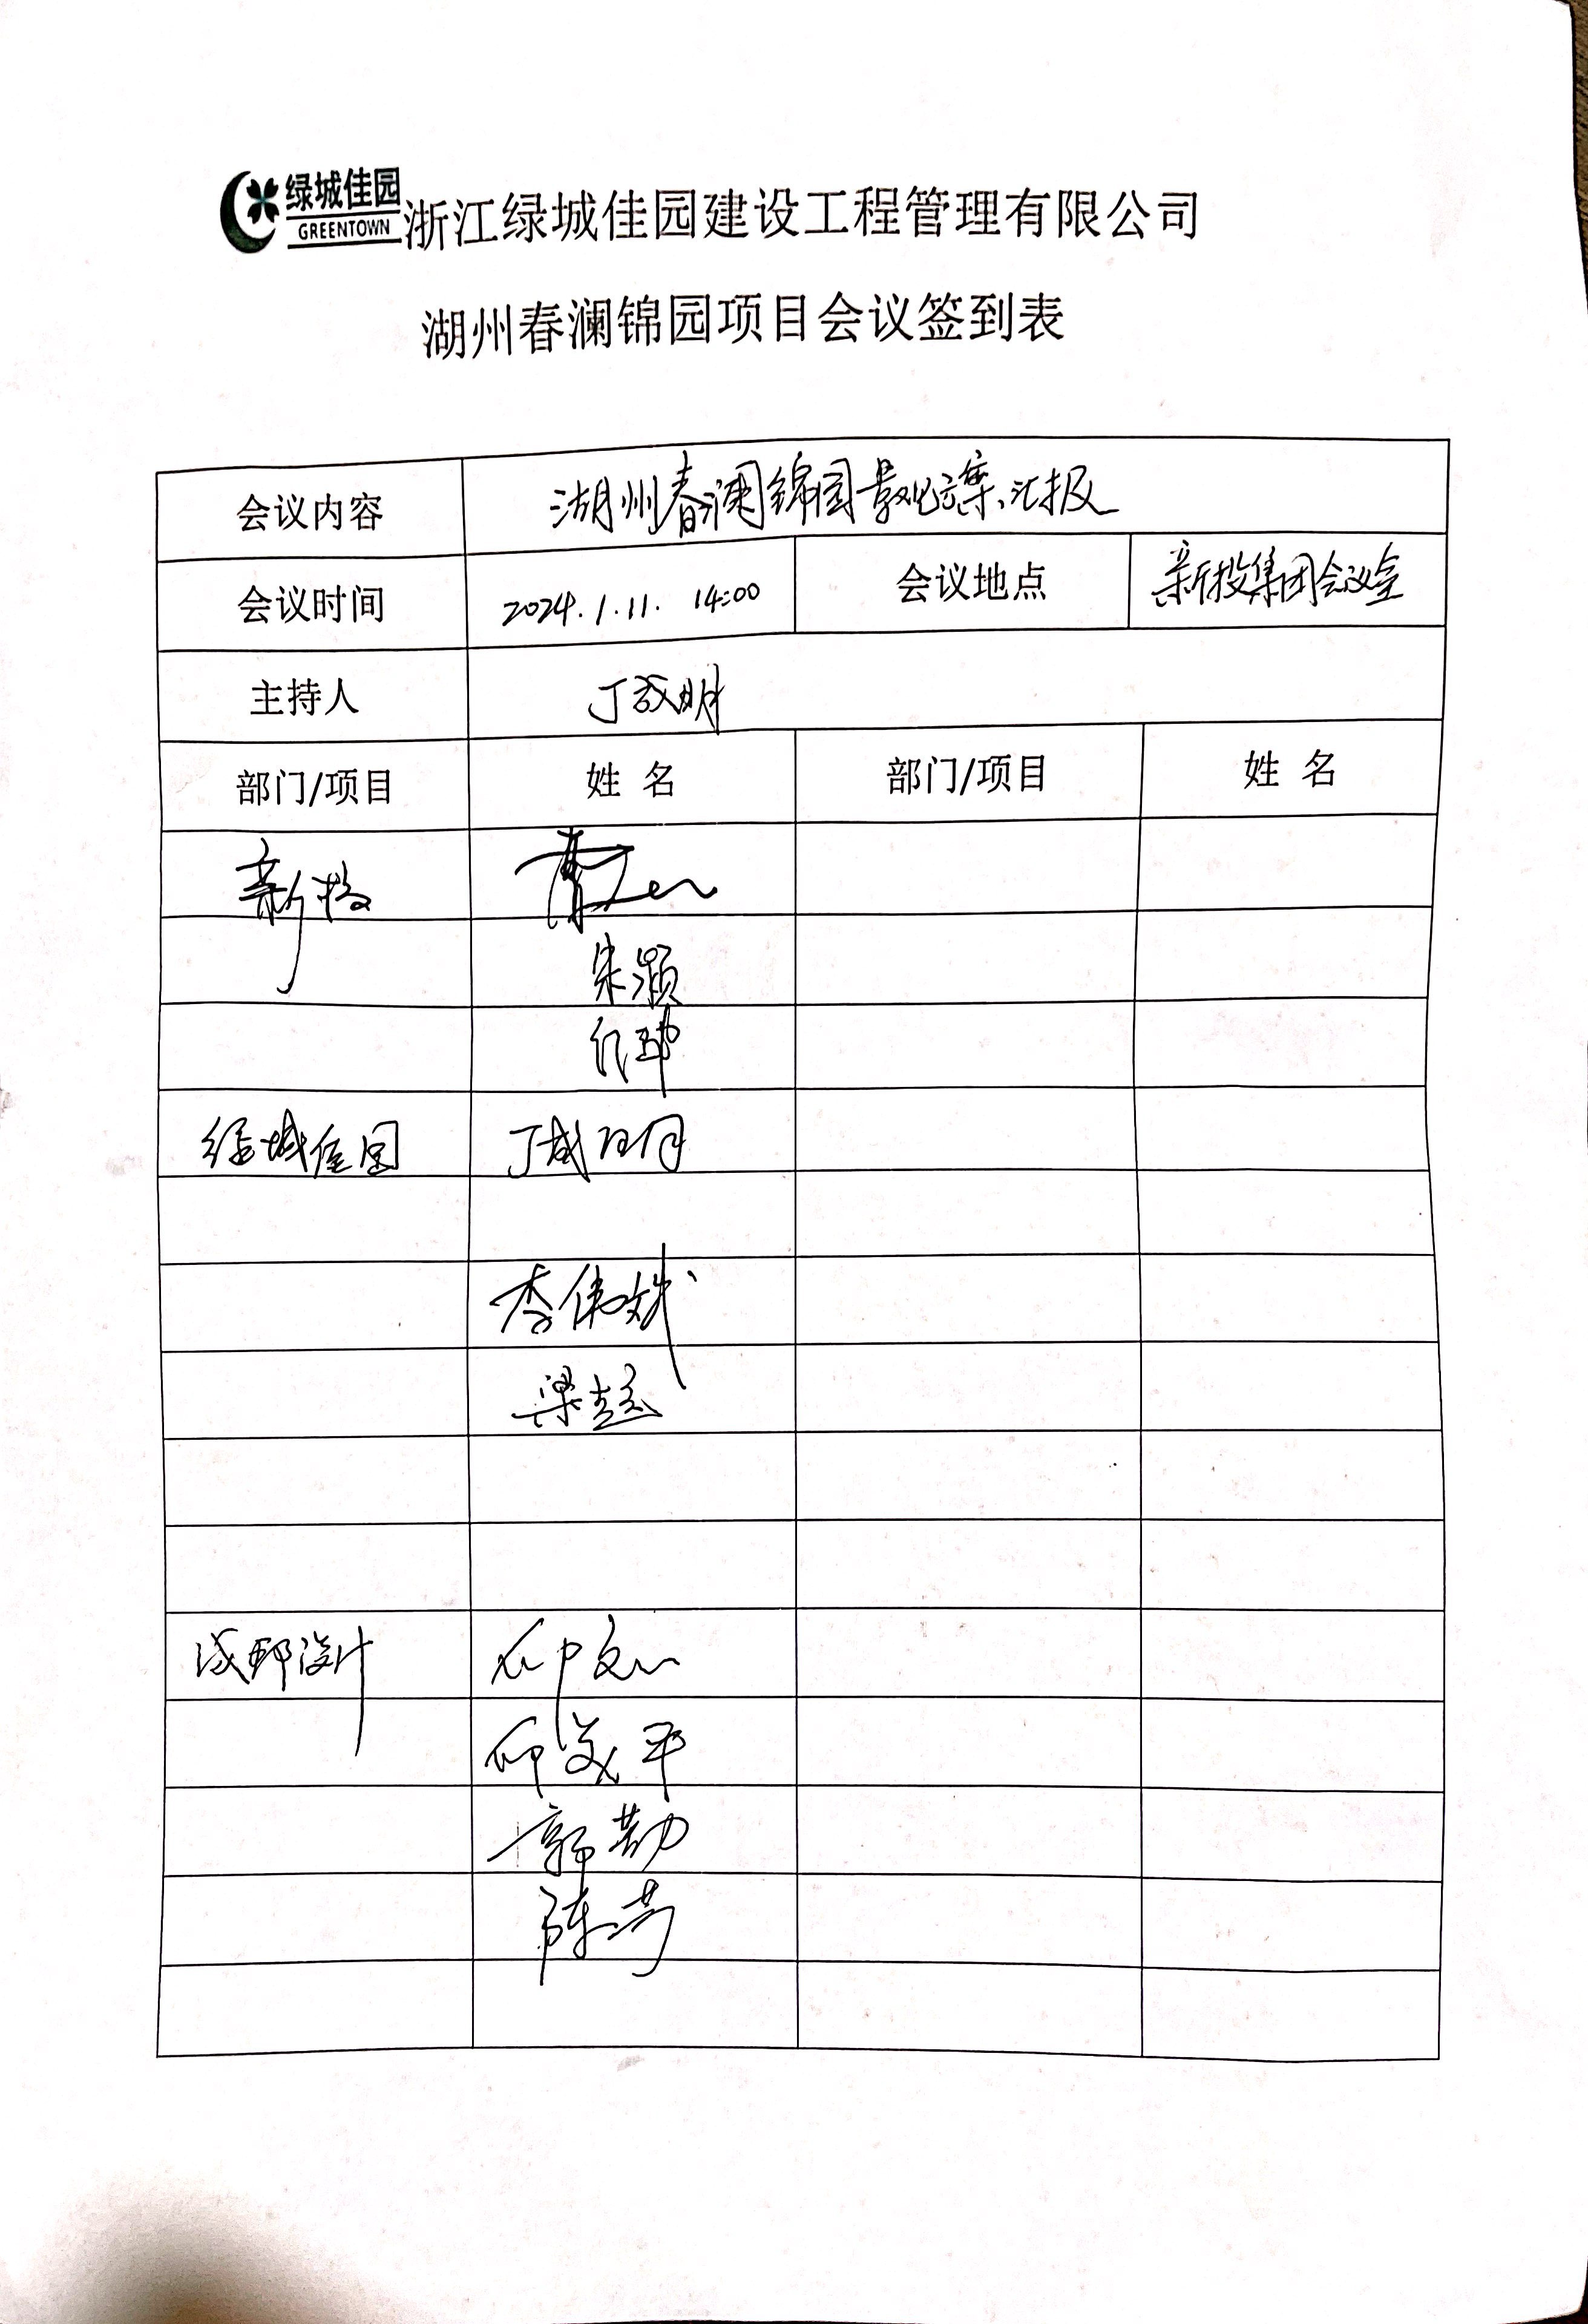 绿城佳园
GREENTOWN
浙江绿城佳园建设工程管理有限公司
湖州春澜锦园项目会议签到表
会议内容 湖州春澜锦园景观方案汇报
会议时间 2024.1.11. 14:00 会议地点 新投集团会议室
主持人 丁成明
部门/项目 姓 名 部门/项目 姓 名
新投
朱颖
绿城佳园 丁成明
李伟斌
梁彪
设计
陈芳